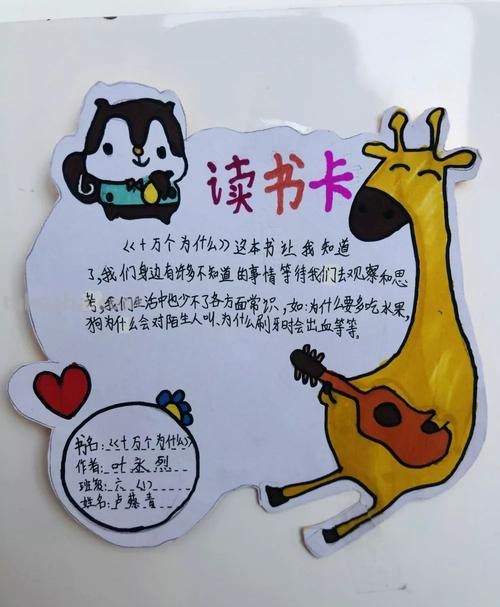 读书卡
《十万个为什么》这本书让我知道
了,我们身边有许多不知道的事情等待我们去观察和思
考,我们生活中也少不了各方面常识,如:为什么要多吃水果,
狗为什么会对陌生人叫、为什么刷牙时会出血等等。
书名:《十万个为什么》
作者:叶永烈
班级:六(1)
姓名:卢蔡青